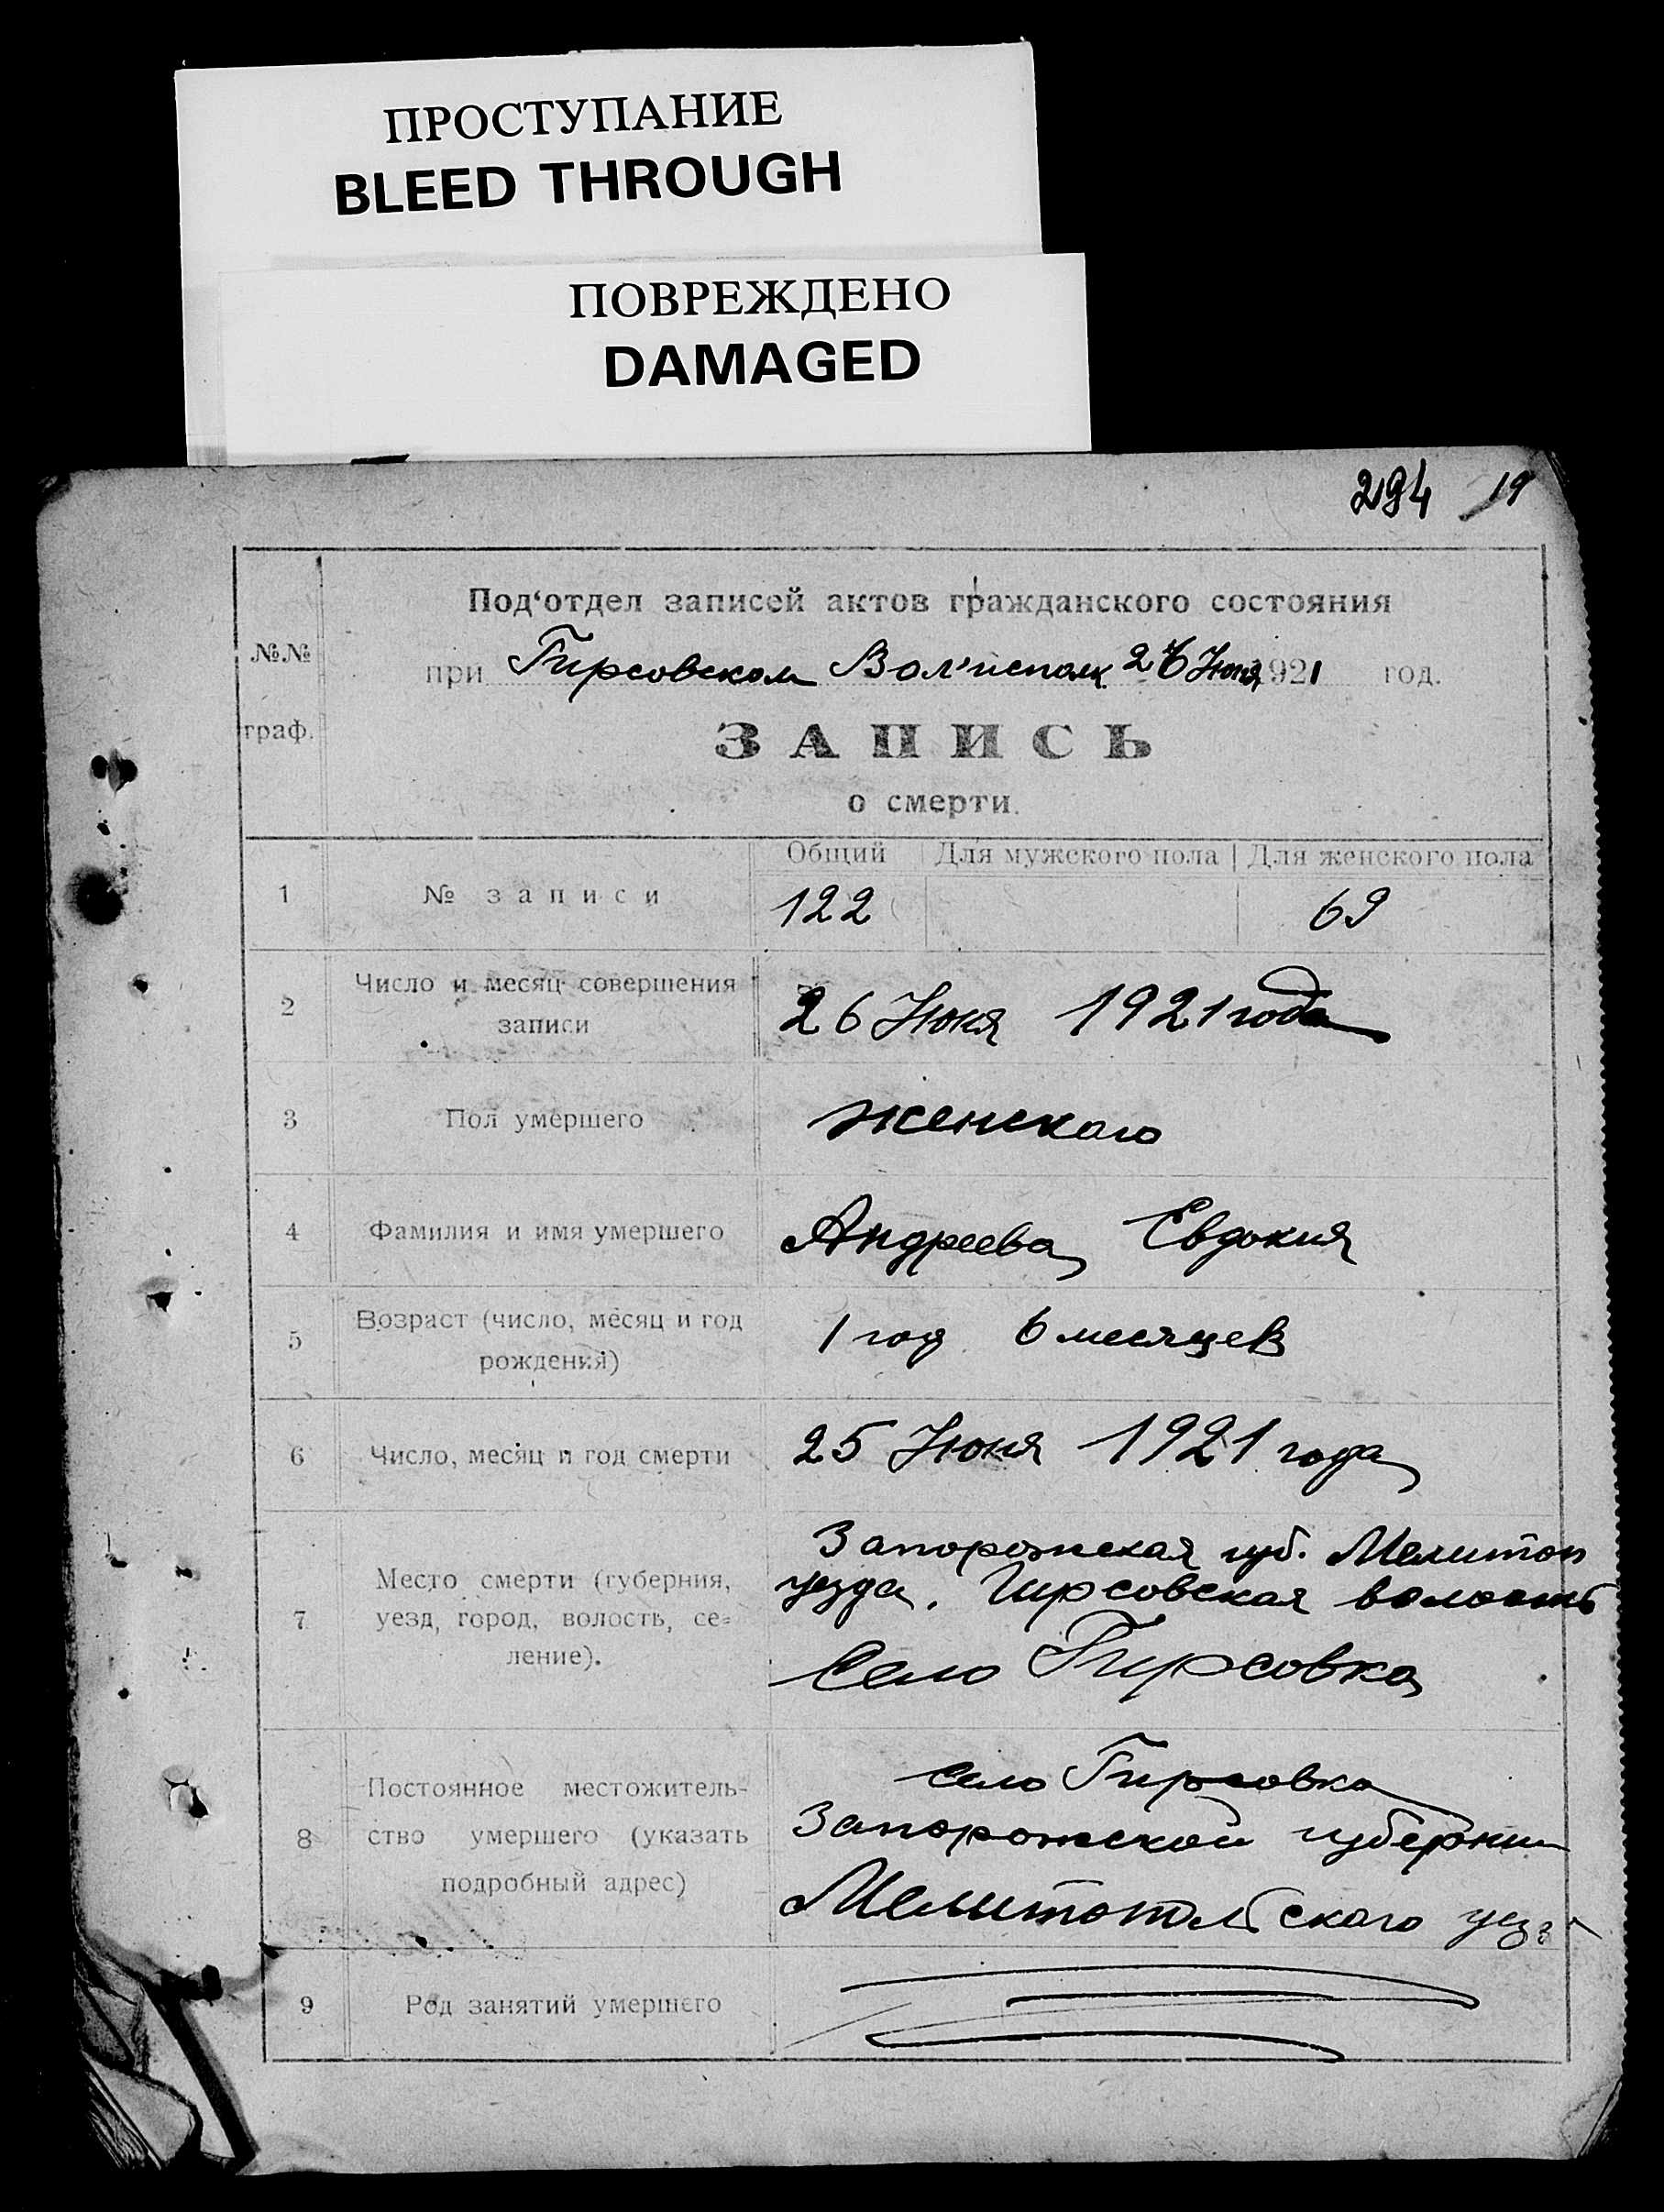 ПРОСТУПАНИЕ
BLEED THROUGH
ПОВРЕЖДЕНО
DAMAGED
294 19
Под‘отдел записей актов гражданского состояния
№№
при Гирсовском Вол'исполк 26 Июня 1921 год.
граф.
ЗАПИСЬ
о смерти.
Общий Для мужского пола Для женского пола
1 № записи 122 69
Число и месяц совершения
2 26 Июня 1921 года
записи
3 Пол умершего женского
4 Фамилия и имя умершего Андреева Евдокия
Возраст (число, месяц и год
5 1 год 6 месяцев
рождения)
6 Число, месяц и год смерти 25 Июня 1921 года
Запорожская губ. Мелитоп
Место смерти (губерния,
уезда. Гирсовская волость
7 уезд, город, волость, се=
ление).
Село Гирсовка
село Гирсовка
Постоянное местожитель-
Запорожской губернии
8 ство умершего (указать
подробный адрес)
Мелитопольского уез
9 Род занятий умершего